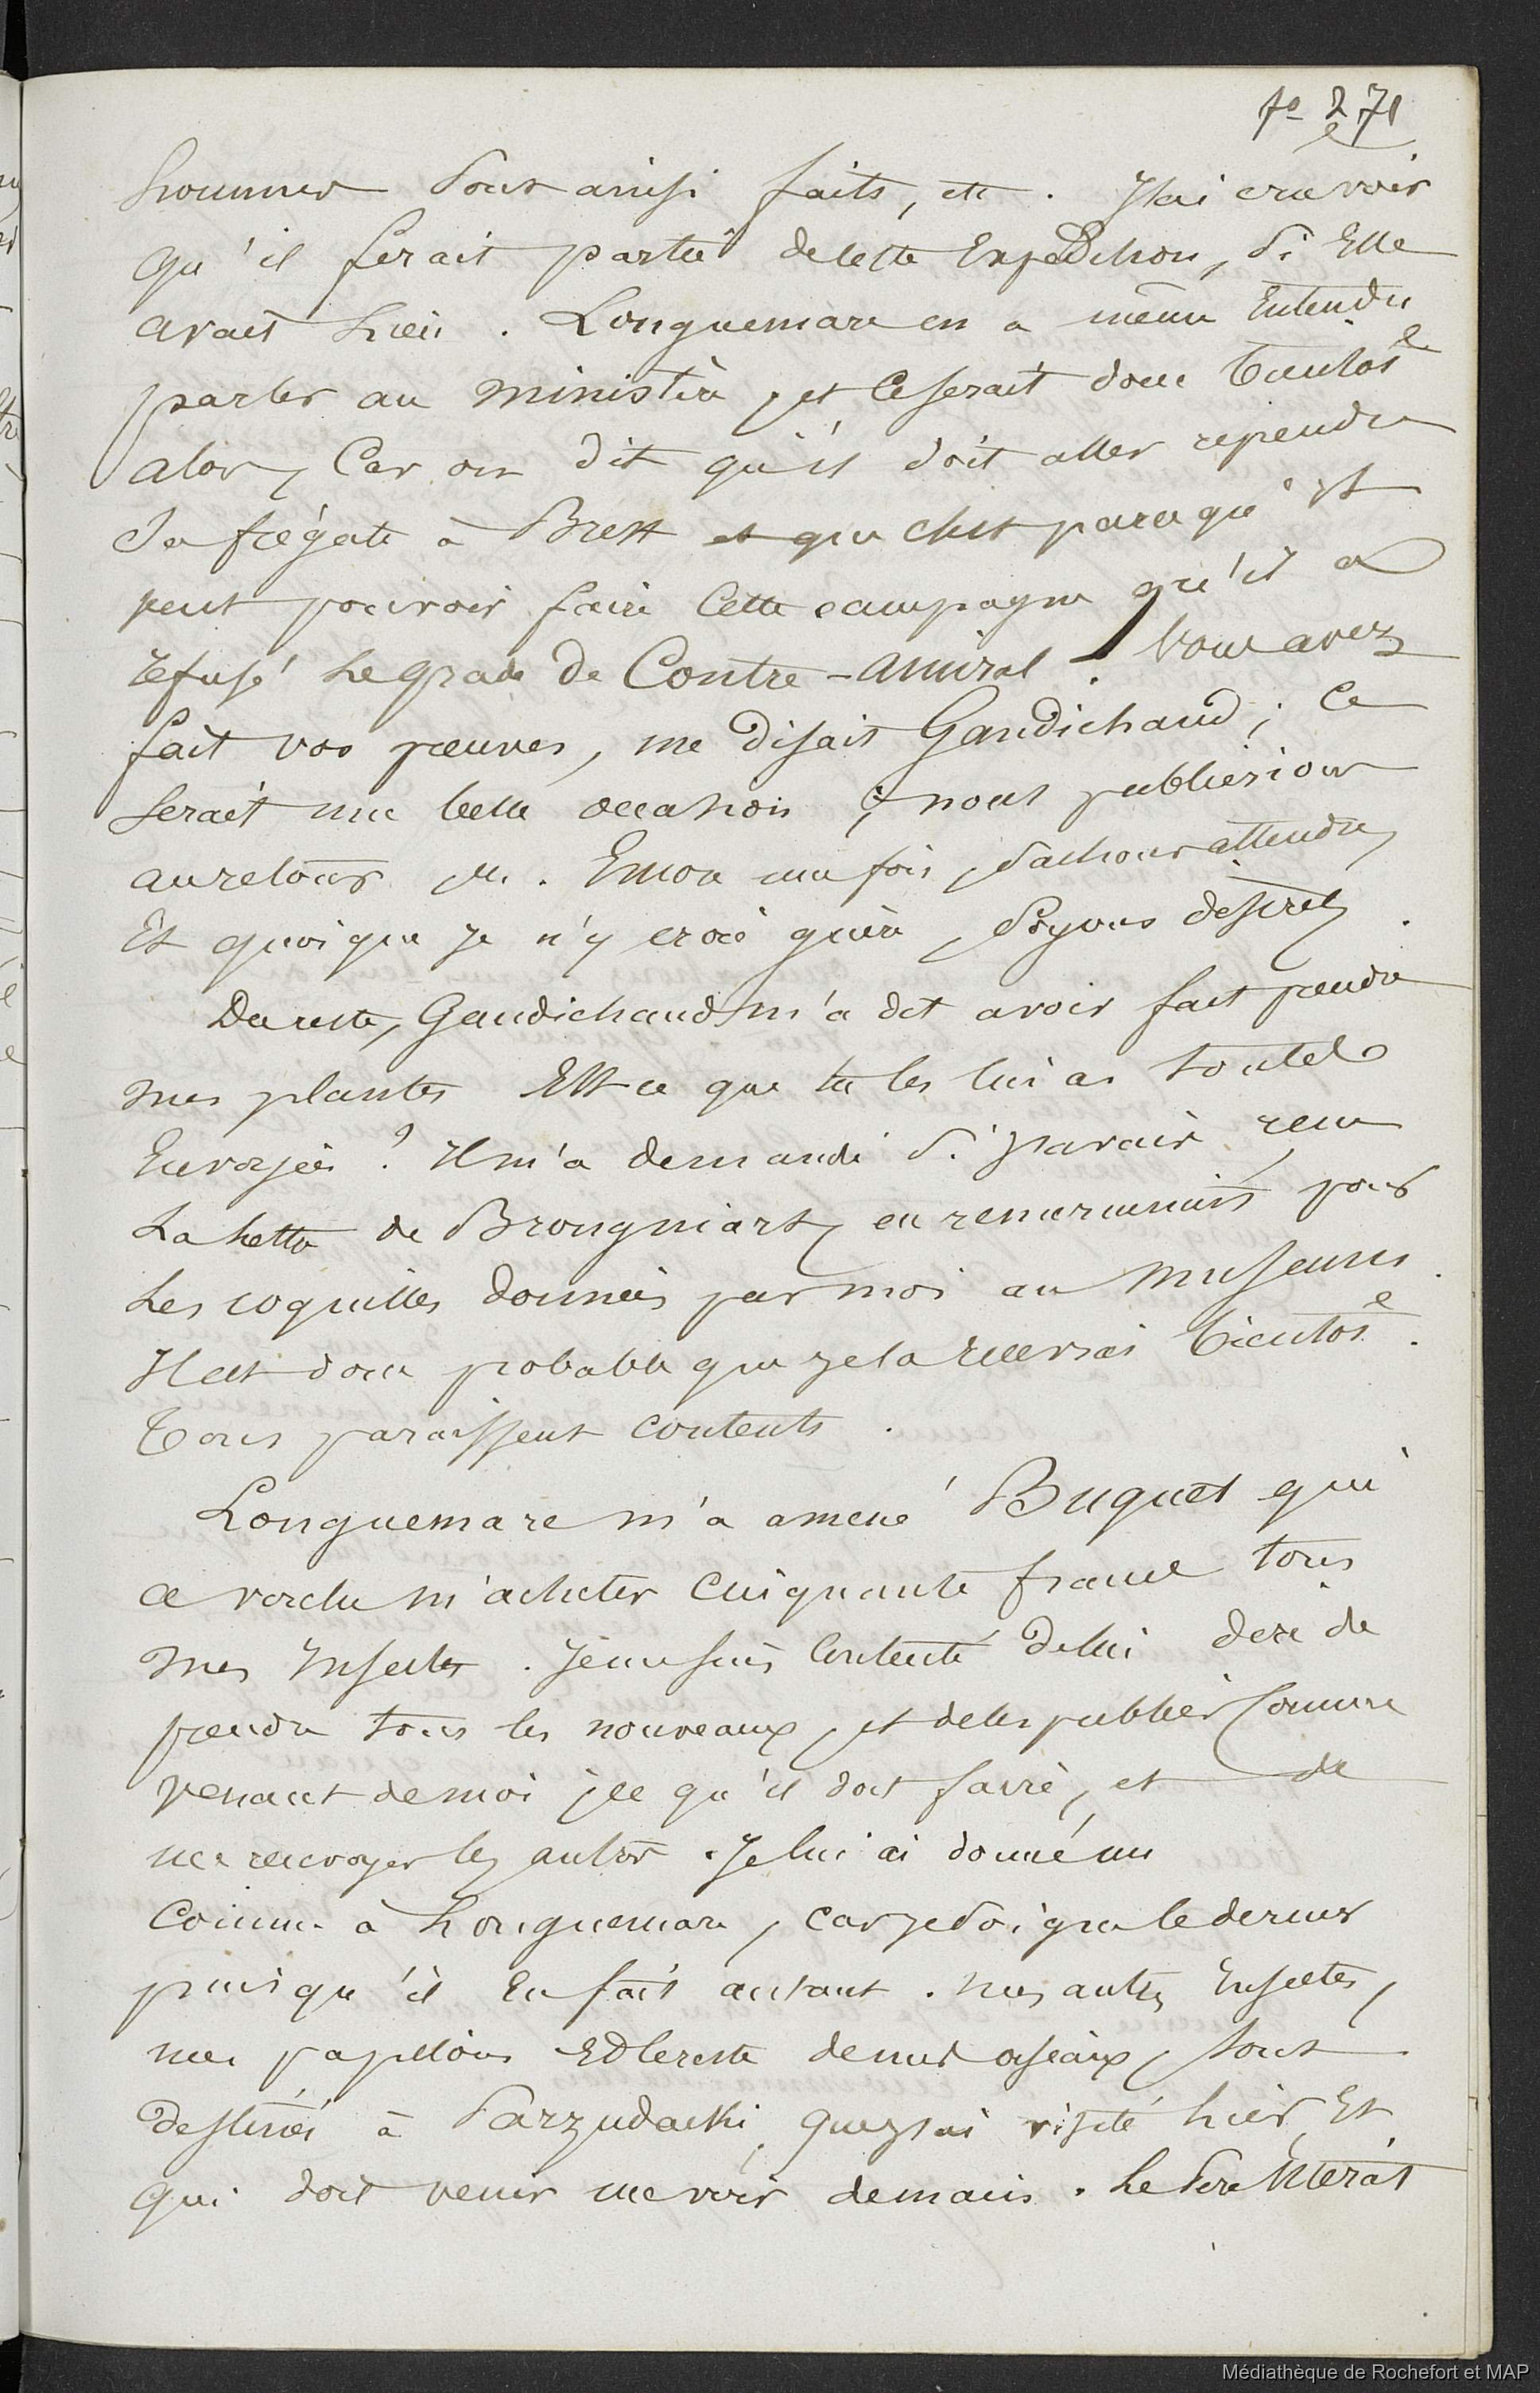 fo 271
hommes sont ainsi faits, etc. J'ai cru voir
qu'il serait partie de cette Expedition, si Elle
avait Lieu. Longuemare en a même Entendu
parler au ministère, et Ce serait donc
alors, Car on dit qu'il doit aller reprendre
Sa frégate à Brest et que c'est parce qu'il
veut pouvoir faire Cette campagne qu'il a
refusé Le grade de Contre-Amiral. Vous avez
fait vos preuves, me disait Gaudichaud; Ce
serait une belle occasion; nous publierions
au retour etc. Encore une fois, sachons attendre,
Et quoique je n'y croie guère, Soyons discrets.
Du reste, Gaudichaud m'a dit avoir fait prendre
mes plantes Est ce que tu les lui as toutes
Envoyées? Il m'a demandé si j'avais reçu
La Lettre de Brongniart, en remerciment pour
Les coquilles données par moi au Museum.
Il est donc probable que je la recevrai bientôt.
Tous paraissent contents.
Longuemare m'a amené Buquet qui
a voulu m'acheter cinquante francs tous
mes Insectes. Je me suis contenté de lui dire de
prendre tous les nouveaux, et de les publier Comme
venant de moi; ce qu'il doit faire, et de
me renvoyer les autres. Je lui ai donné un
Comme à Longuemare, car je soigne le dernier
puisqu'il En fait autant. mes autres Insectes,
mes papillons Et le reste de mes oiseaux, sont
destinés à Parzudaski, que j'ai visité hier, Et
qui doit venir me voir demain. Le Père